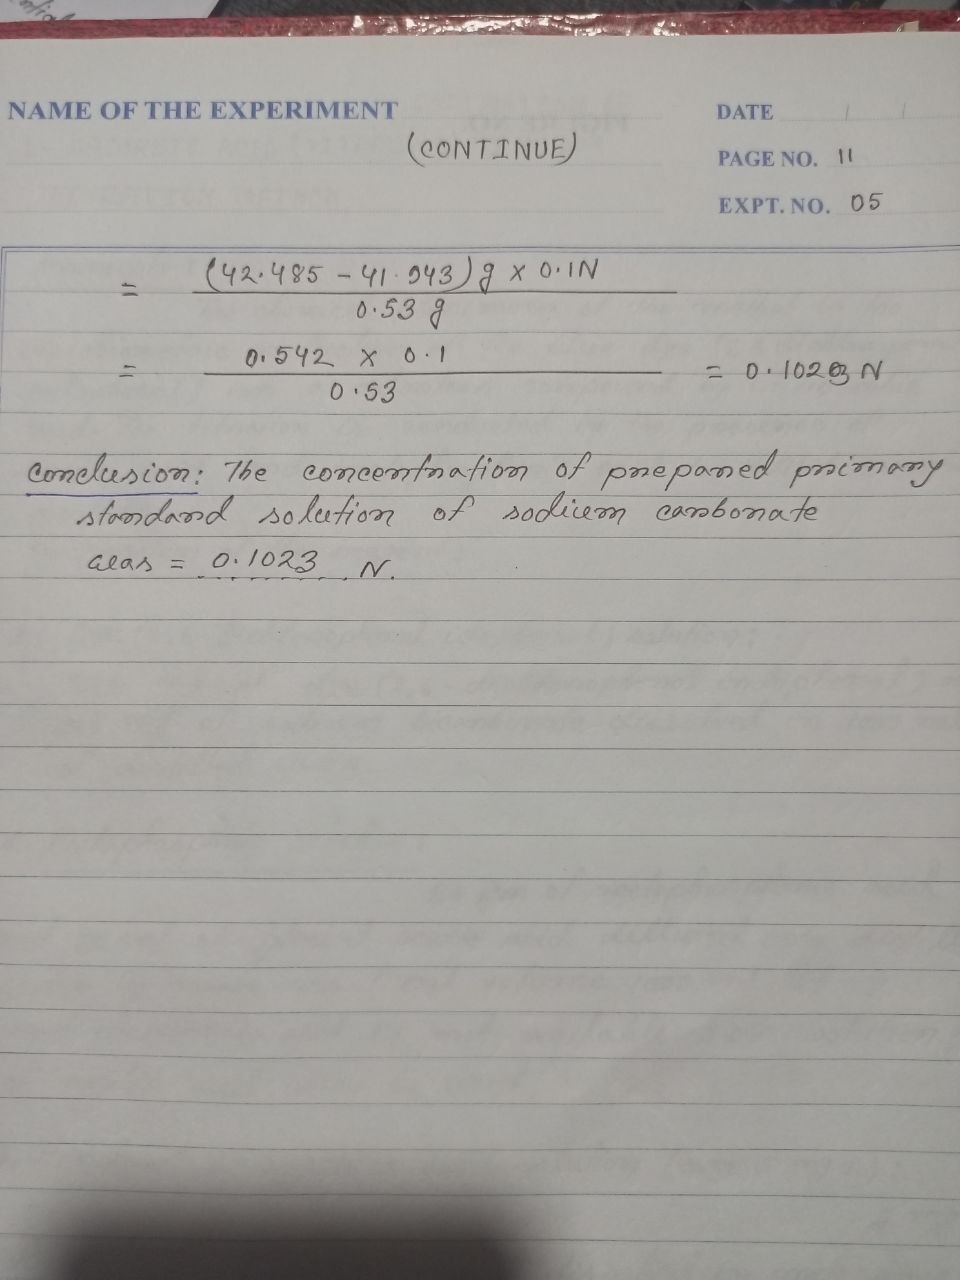 NAME OF THE EXPERIMENT
(CONTINUE)
DATE / /
PAGE NO. 11
EXPT. NO. 05
= (42.485 - 41.943) g x 0.1N
0.53 g
= 0.542 x 0.1
0.53
= 0.1023 N
Conclusion: The concentration of prepared primary
standard solution of sodium carbonate
was = 0.1023 N.